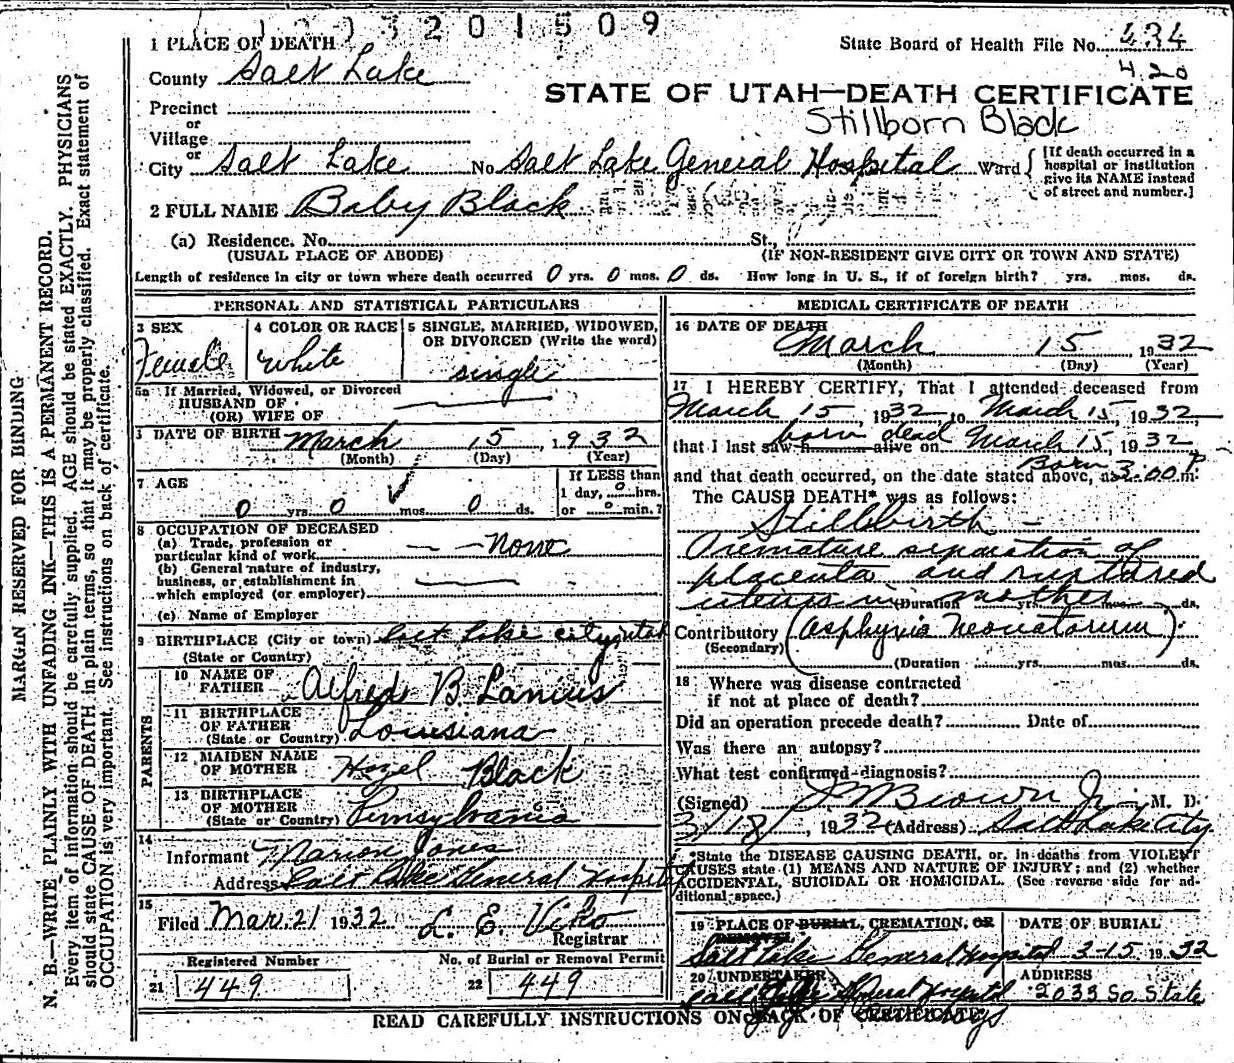 1203201509
1 PLACE OF DEATH
State Board of Health File No. 434
4.20
County Salt Lake
STATE OF UTAH—DEATH CERTIFICATE
Precinct
or
Stillborn Black
Village
or
City Salt Lake No Salt Lake General Hospital Ward
[If death occurred in a
hospital or institution
give its NAME instead
of street and number.]
2 FULL NAME Baby Black
(a) Residence. No. St.,
(USUAL PLACE OF ABODE) (IF NON-RESIDENT GIVE CITY OR TOWN AND STATE)
Length of residence in city or town where death occurred 0 yrs. 0 mos. 0 ds. How long in U. S., if of foreign birth? yrs. mos. ds.
PERSONAL AND STATISTICAL PARTICULARS
3 SEX
Female
4 COLOR OR RACE
White
5 SINGLE, MARRIED, WIDOWED,
OR DIVORCED (Write the word)
single
5a If Married, Widowed, or Divorced
HUSBAND OF
(OR) WIFE OF
DATE OF BIRTH March 15 1932
(Month) (Day) (Year)
7 AGE
0 yrs. 0 mos. 0 ds.
If LESS than
1 day, 0 hrs.
or 0 min.?
8 OCCUPATION OF DECEASED
(a) Trade, profession or
particular kind of work None
(b) General nature of industry,
business, or establishment in
which employed (or employer)
(c) Name of Employer
9 BIRTHPLACE (City or town) Salt Lake City, Utah
(State or Country)
PARENTS
10 NAME OF
FATHER Alfred B Lanius
11 BIRTHPLACE
OF FATHER
(State or Country) Louisiana
12 MAIDEN NAME
OF MOTHER Hazel Black
13 BIRTHPLACE
OF MOTHER
(State or Country) Pennsylvania
14
Informant Marion Jones
Address Salt Lake General Hospital
15
Filed Mar. 21 1932 L. E. Viko
Registrar
Registered Number
21 449
No. of Burial or Removal Permit
22 449
MEDICAL CERTIFICATE OF DEATH
16 DATE OF DEATH
March 15, 1932
(Month) (Day) (Year)
17 I HEREBY CERTIFY, That I attended deceased from
March 15, 1932 to March 15, 1932
that I last saw h alive on born dead March 15, 1932
and that death occurred, on the date stated above, at Born 3:00 P m.
The CAUSE DEATH* was as follows:
Stillbirth -
Premature separation of
placenta and ruptured
uterus in mother
(Duration yrs. mos. ds.
Contributory (Asphyxia Neonatorum)
(Secondary)
(Duration yrs. mos. ds.
18 Where was disease contracted
if not at place of death?
Did an operation precede death? Date of
Was there an autopsy?
What test confirmed diagnosis?
(Signed) J M Brown Jr M. D.
3/18/, 1932 (Address) Salt Lake City
*State the DISEASE CAUSING DEATH, or, in deaths from VIOLENT
CAUSES state (1) MEANS AND NATURE OF INJURY; and (2) whether
ACCIDENTAL, SUICIDAL OR HOMICIDAL. (See reverse side for ad-
ditional space.)
19 PLACE OF BURIAL, CREMATION, OR
REMOVAL
Salt Lake General Hospital
DATE OF BURIAL
3-15 1932
20 UNDERTAKER
Salt Lake General Hospital
ADDRESS
2033 So. State
READ CAREFULLY INSTRUCTIONS ON BACK OF CERTIFICATE
MARGAN RESERVED FOR BINDING
N. B.—WRITE PLAINLY WITH UNFADING INK—THIS IS A PERMANENT RECORD.
Every item of information should be carefully supplied. AGE should be stated EXACTLY. PHYSICIANS
should state CAUSE OF DEATH in plain terms, so that it may be properly classified. Exact statement of
OCCUPATION is very important. See instructions on back of certificate.